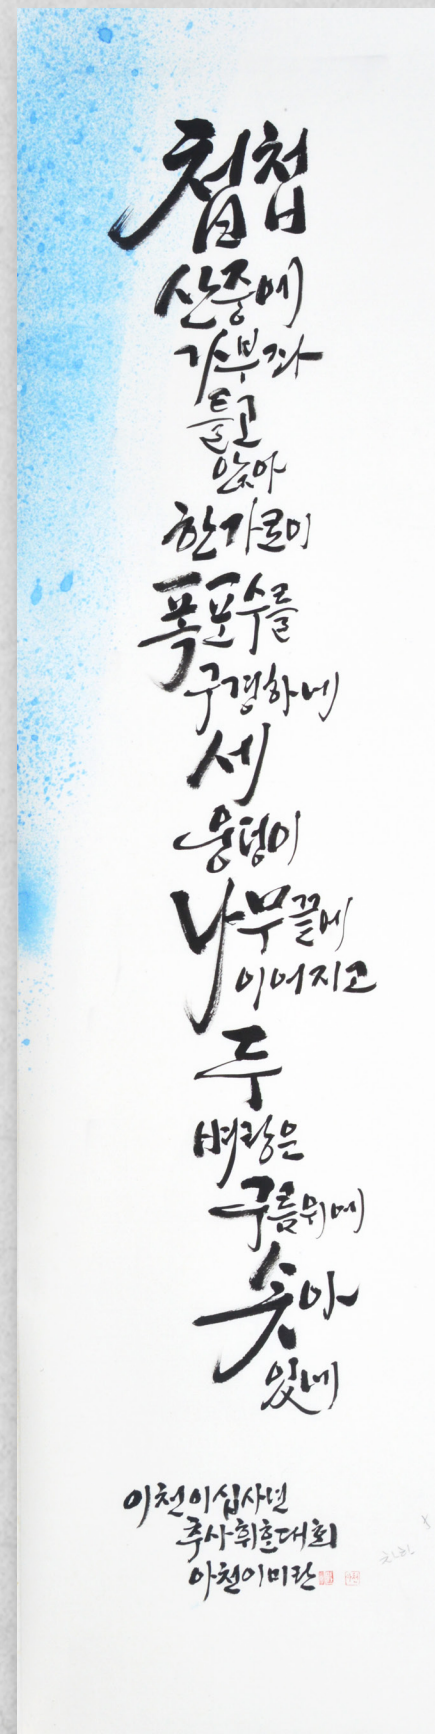 첩첩
산중에
가부좌
틀고
앉아
한가로이
폭포수를
구경하네
세
웅덩이
나무끝에
이어지고
두
벼랑은
구름위에
솟아
있네
이천이십사년
추사휘호대회
아천이미란